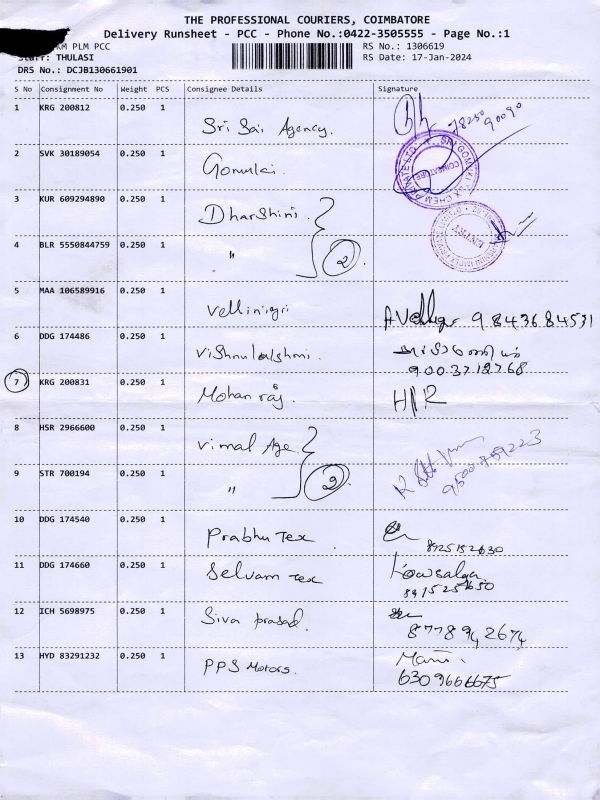 THE PROFESSIONAL COURIERS, COIMBATORE
Delivery Runsheet - PCC - Phone No.:0422-3505555 - Page No.:1
KM PLM PCC
RS No.: 1306619
Staff: THULASI
RS Date: 17-Jan-2024
DRS No.: DCJB130661901
S No Consignment No Weight PCS Consignee Details Signature
1 KRG 200812 0.250 1 Sri Sai Agency. 78250 90090
2 SVK 30189054 0.250 1 Gomulai
3 KUR 609294890 0.250 1 Dharshini
4 BLR 5550844759 0.250 1 " 2
5 MAA 106589916 0.250 1 Vellinigri 9843684531
6 DDG 174486 0.250 1 Vishnulakshmi. 9003712768
7 KRG 200831 0.250 1 Mohan raj.
8 HSR 2966600 0.250 1 Vimal Age.
9 STR 700194 0.250 1 " 2
10 DDG 174540 0.250 1 Prabhu Tex 8925152630
11 DDG 174660 0.250 1 Selvam Tex Kowsalya
12 ICH 5698975 0.250 1 Siva prasad. 8778942674
13 HYD 83291232 0.250 1 PPS Motors. Mani.
6309666675